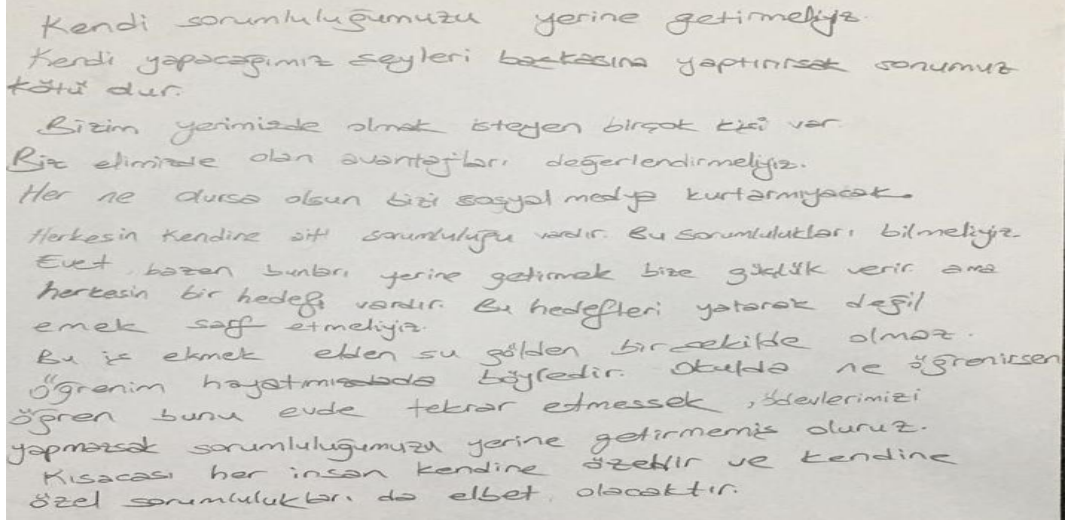 Kendi sorumluluğumuzu yerine getirmeliyiz.
Kendi yapacağımız şeyleri başkasına yaptırırsak sonumuz
kötü dur.
Bizim yerimizde olmak isteyen birçok kişi var.
Biz elimizde olan avantajları değerlendirmeliyiz.
Her ne olursa olsun bizi sosyal medya kurtarmıyacak.
Herkesin kendine ait sorumluluğu vardır. Bu sorumlulukları bilmeliyiz.
Evet bazen bunları yerine getirmek bize güçlük verir ama
herkesin bir hedefi vardır. Bu hedefleri yatarak değil
emek sarf etmeliyiz.
Bu iş ekmek elden su gölden bir şekilde olmaz.
Öğrenim hayatmızdada böyledir. Okulda ne öğrenirsen
öğren bunu evde tekrar etmessek, ödevlerimizi
yapmazsak sorumluluğumuzu yerine getirmemiş oluruz.
Kısacası her insan kendine özeldir ve kendine
özel sorumlulukları da elbet olacaktır.